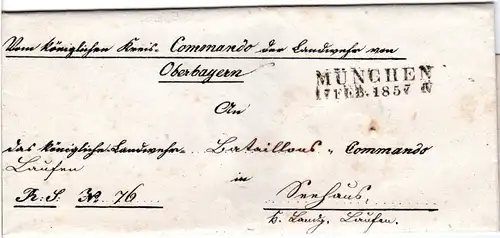 Vom königlichen Kreis-Commando der Landwehr von
Oberbayern
MÜNCHEN
17 FEB. 1857 IV
An
das königliche Landwehr- Bataillons-Commando
Laufen
in
R: S: No. 76
Seehaus,
k. Landg. Laufen.